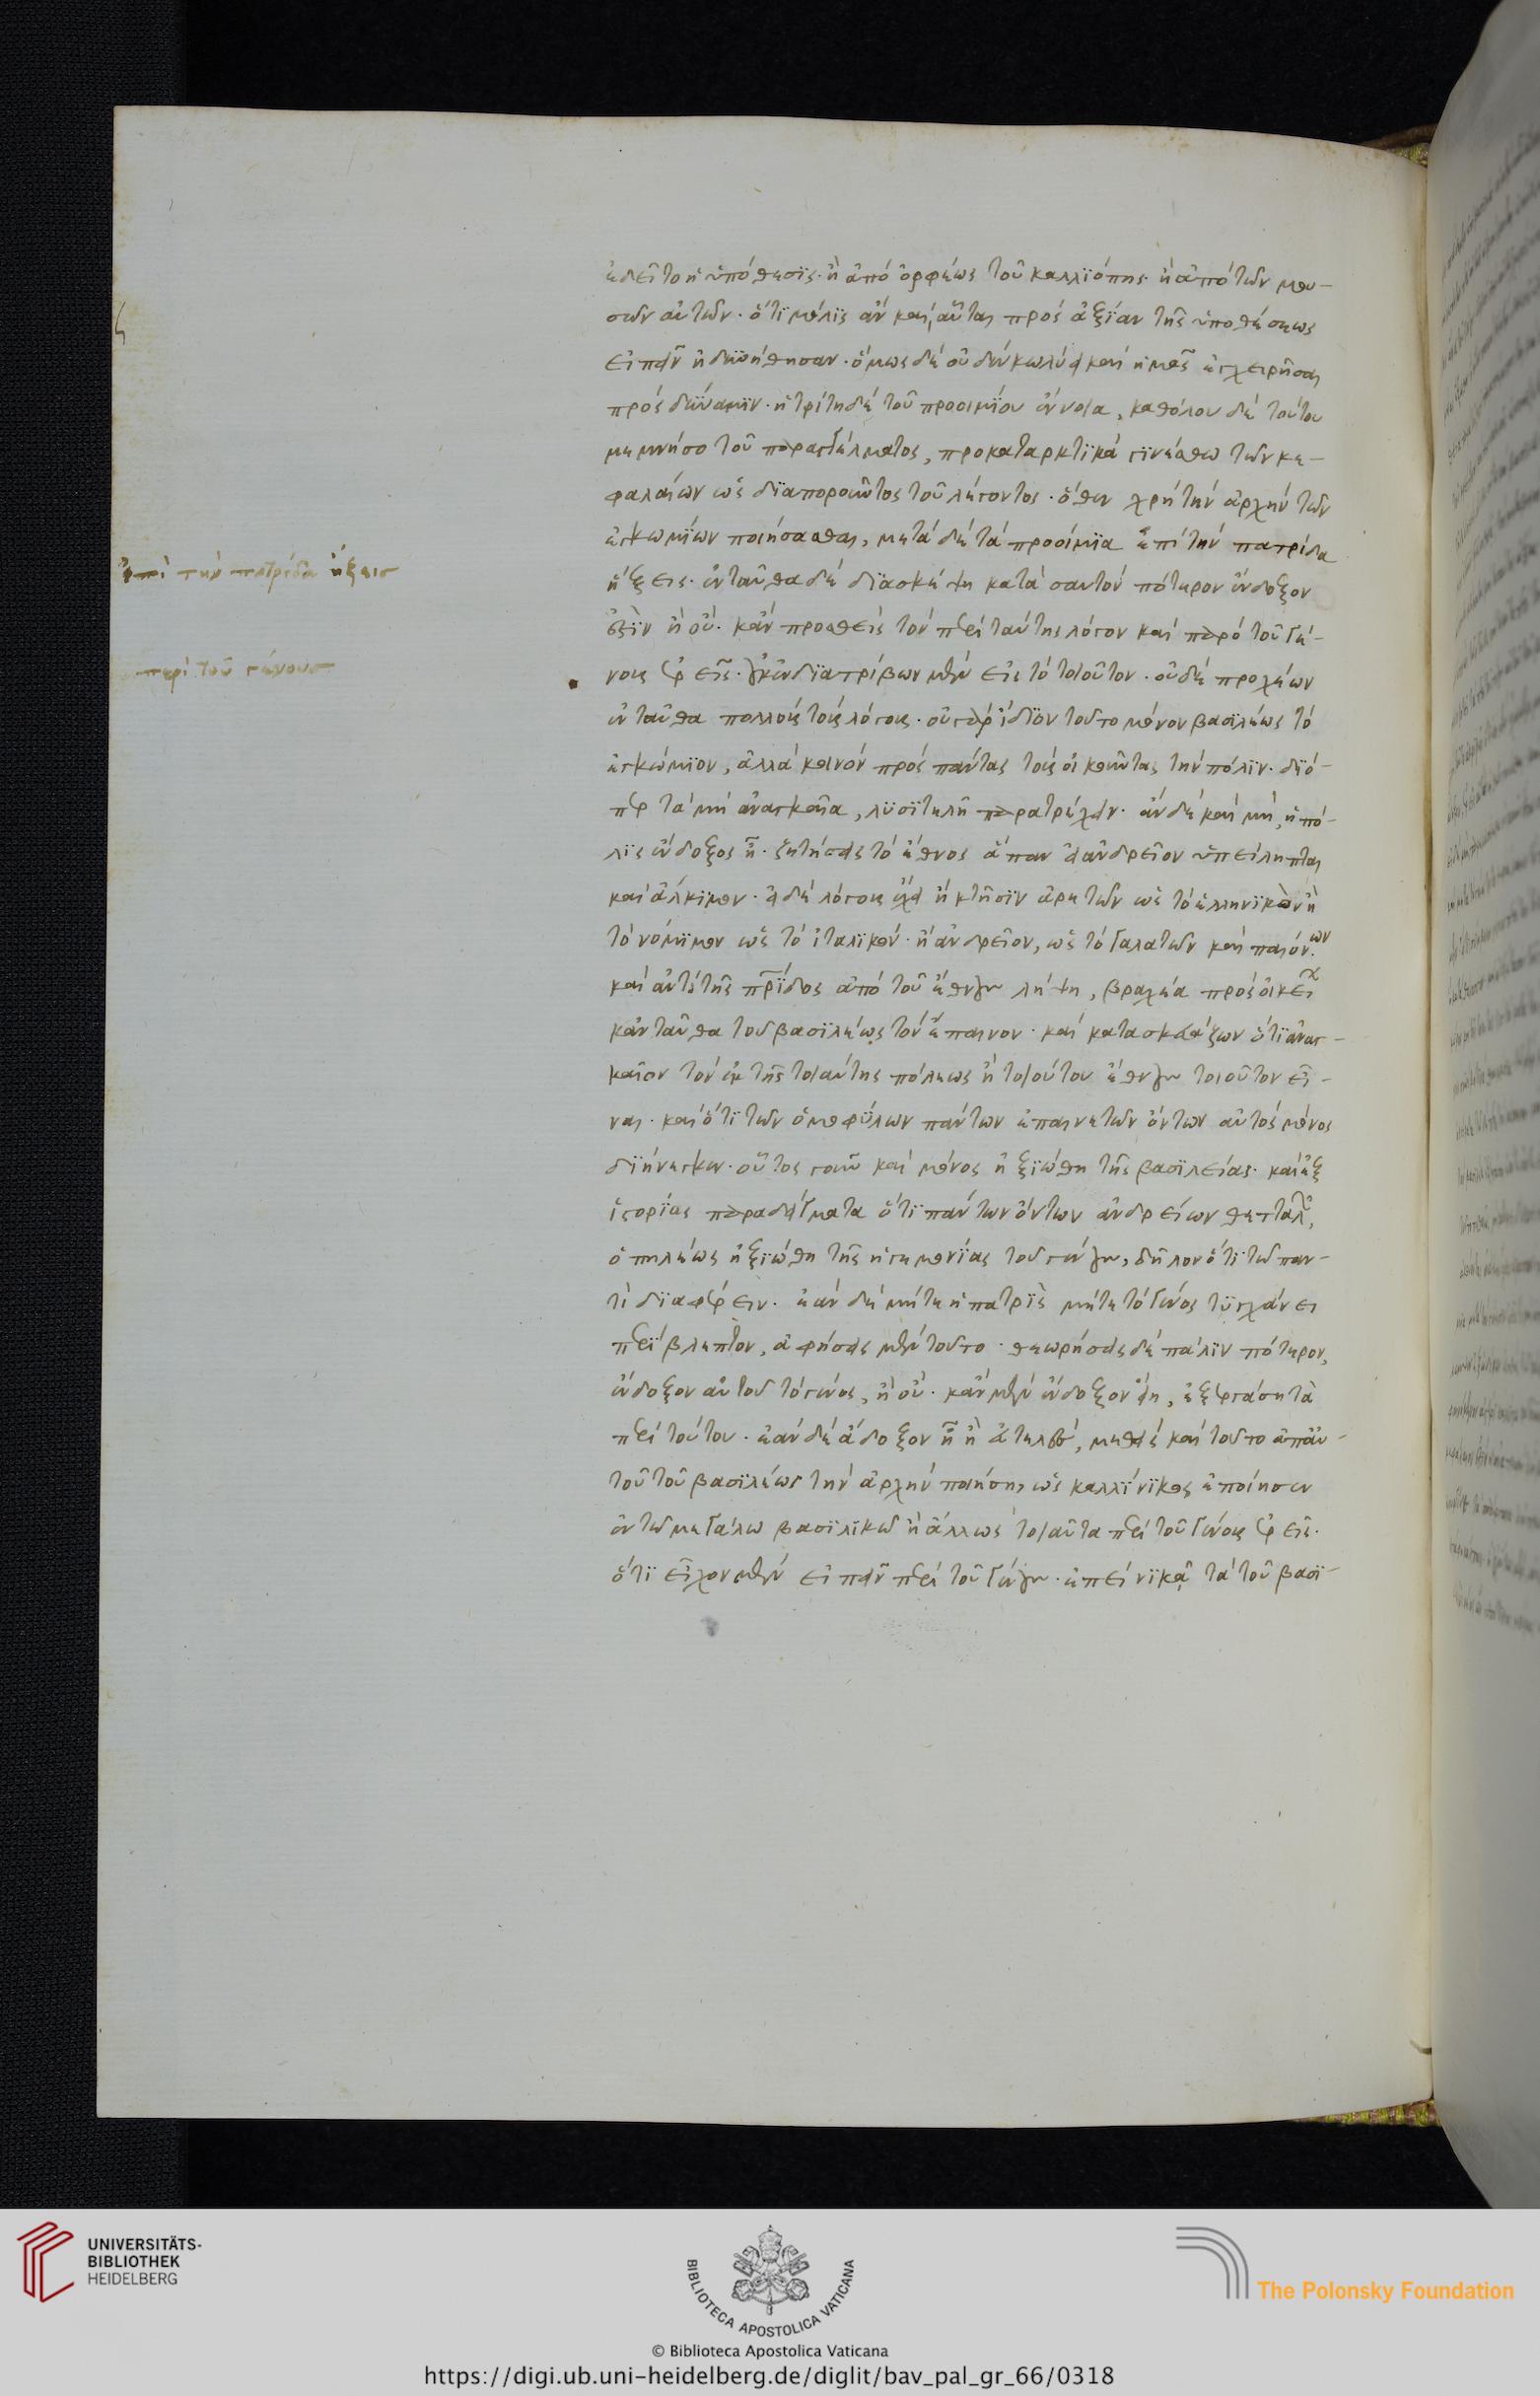 ἐδεῖτο ἡ ὑπόθεσϊς. ἢ ἀπὸ ὀρφέως τοῦ καλλϊόπης. ἢ ἀπὸ τῶν μου-
σῶν αὐτῶν. ὅτϊ μόλϊς ἂν καὶ αὗται πρὸς ἀξίαν τῆς ὑποθέσεως
εἰπεῖν ἠδυνήθησαν. ὅμως δὲ οὐδὲν κωλύει καὶ ἡμᾶς ἐγχειρῆσαι
πρὸς δύναμϊν. ἡ τρίτη δὲ τοῦ προοιμΐου ἔννοια, καθόλου δὲ τούτου
μέμνησο τοῦ παραγγέλματος, προκαταρκτϊκὰ γϊνέσθω τῶν κε-
φαλαίων ὡς δϊαποροῦντος τοῦ λέγοντος. ὅθεν χρὴ τὴν ἀρχὴν τῶν
ἐγκωμΐων ποιήσασθαι, μετὰ δὲ τὰ προοίμϊα ἐπὶ τὴν πατρίδα
ἥξεις. ἐνταῦθα δὲ δϊασκέψη κατὰ σαυτὸν πότερον ἔνδοξον
ἐστὶν ἢ οὔ. κἂν προσθεὶς τὸν περὶ ταύτης λόγον καὶ πρὸ τοῦ γέ-
νους ἐρεῖς. οὐκ ἐνδϊατρίβων μὲν εἰς τὸ τοιοῦτον. οὐδὲ προχέων
ἐνταῦθα πολλοὺς τοὺς λόγους. οὐ γὰρ ἴδϊον τοῦτο μόνον βασϊλέως τὸ
ἐγκώμϊον, ἀλλὰ κοινὸν πρὸς πάντας τοὺς οἰκοῦντας τὴν πόλϊν. δϊό-
περ τὰ μὴ ἀναγκαῖα, λυσϊτελῆ παρατρέχειν. ἂν δὲ καὶ μὴ, ἡ πό-
λϊς ἔνδοξος ᾖ. ζητήσεις τὸ ἔθνος ἅπαν εἰ ἀνδρεῖον ὑπείληπται
καὶ ἄλκϊμον. εἰ δὲ λόγους ἔχει ἢ κτῆσϊν ἀρετῶν ὡς τὸ ἑλληνϊκὸν ἢ
τὸ νόμϊμον ὡς τὸ ἰταλϊκόν. ἢ ἀνδρεῖον, ὡς τὸ γαλατῶν καὶ παιόνων.
καὶ ἀντὶ τῆς πρΐδος ἀπὸ τοῦ ἔθνους λήψη, βραχέα προσοικειῶν
κἀνταῦθα τοῦ βασϊλέως τὸν ἔπαινον. καὶ κατασκευάζων ὅτϊ ἀναγ-
καῖον τὸν ἐκ τῆς τοιαύτης πόλεως ἢ τοιούτου ἔθνους τοιοῦτον εἶ-
ναι. καὶ ὅτϊ τῶν ὁμοφύλων πάντων ἐπαινετῶν ὄντων αὐτὸς μόνος
δϊήνεγκεν. οὗτος γοῦν καὶ μόνος ἠξϊώθη τῆς βασϊλείας. καὶ ἐξ
ἱστορίας παραδείγματα ὅτϊ πάντων ὄντων ἀνδρείων θετταλῶν,
ὁ πηλέως ἠξϊώθη τῆς ἡγεμονΐας τοῦ γένους, δῆλον ὅτϊ τῶ παν-
τὶ δϊαφέρειν. ἐὰν δὲ μήτε ἡ πατρὶς μήτε τὸ γένος τυγχάνει
περϊβλεπτον, ἀφήσεις μὲν τοῦτο. θεωρήσεις δὲ πάλϊν πότερον,
ἔνδοξον αὐτοῦ τὸ γένος, ἢ οὔ. κἂν μὲν ἔνδοξον ἦ, ἐξεργάση τὰ
περὶ τούτου. ἐὰν δὲ ἄδοξον ᾖ ἢ ἀτελὲς, μεθεὶς καὶ τοῦτο ἀπ' αὐ-
τοῦ τοῦ βασϊλέως τὴν ἀρχὴν ποιήση, ὡς καλλΐνϊκος ἐποίησεν
ἐν τῶ μεγάλω βασϊλϊκῶ ἢ ἄλλως τοιαῦτα περὶ τοῦ γένους ἐρεῖς.
ὅτϊ εἶχον μὲν εἰπεῖν περὶ τοῦ γένους. ἐπεὶ νϊκᾶ τὰ τοῦ βασϊ-
ἐπὶ τὴν πατρίδα ἥξεισ
περὶ τοῦ γένουσ
UNIVERSITÄTS-
BIBLIOTHEK
HEIDELBERG
BIBLIOTECA APOSTOLICA VATICANA
The Polonsky Foundation
© Biblioteca Apostolica Vaticana
https://digi.ub.uni-heidelberg.de/diglit/bav_pal_gr_66/0318